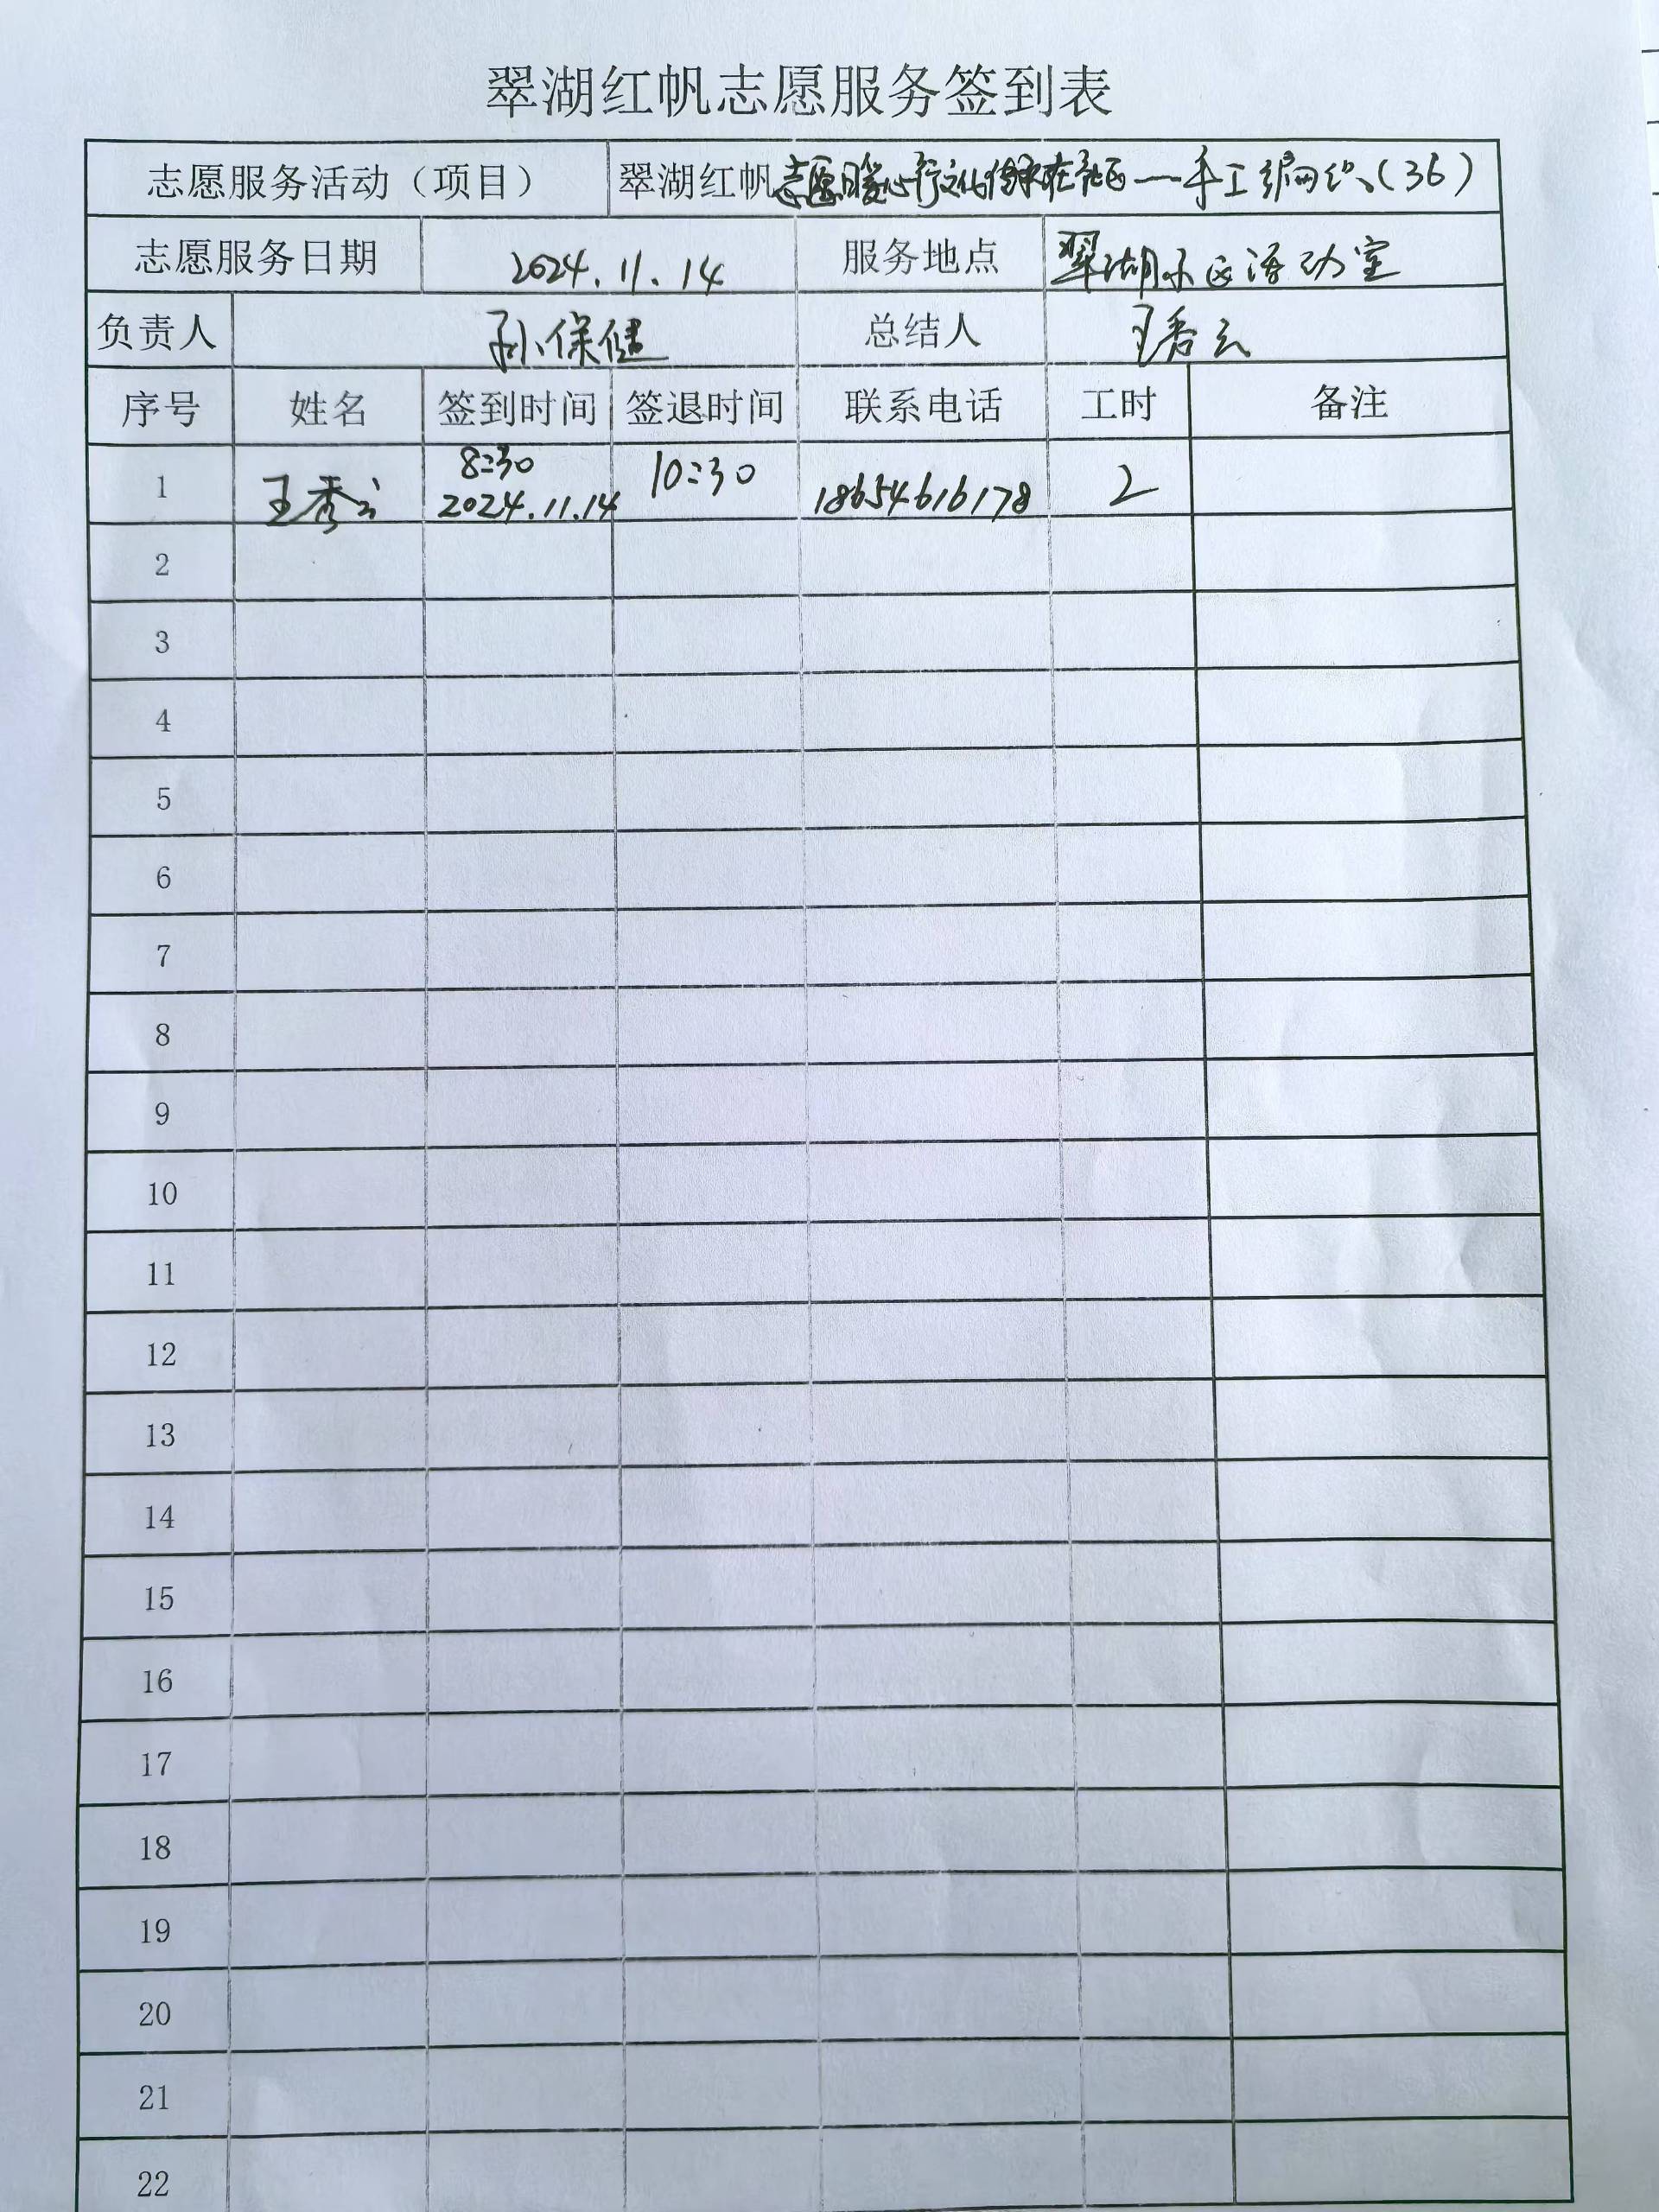 翠湖红帆志愿服务签到表
志愿服务活动（项目） 翠湖红帆志愿暖心行文化传承在社区——手工编织（36）
志愿服务日期 2024.11.14 服务地点 翠湖小区活动室
负责人 孙保健 总结人 王秀云
序号 姓名 签到时间 签退时间 联系电话 工时 备注
1 王秀云 8:30 2024.11.14 10:30 18654616178 2
2
3
4
5
6
7
8
9
10
11
12
13
14
15
16
17
18
19
20
21
22